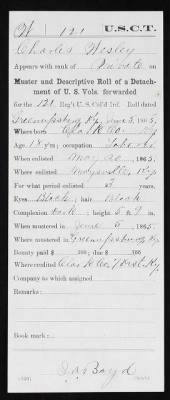 W | 121 | U.S.C.T.
Charles Wesley
Appears with rank of Private on
Muster and Descriptive Roll of a Detach-
ment of U. S. Vols. forwarded
for the 121 Reg't U.S. Col'd Inf. Roll dated
Greenupsburg Ky, June 5, 1865.
Where born Clark Co. Ky
Age 18 y'rs; occupation Laborer
When enlisted May 20, 1865.
Where enlisted Ky
For what period enlisted 3 years.
Eyes Black; hair Black
Complexion Dark; 5 ft. in.
When mustered in June 5, 1865.
Where mustered in Greenupsburg Ky
Bounty paid $ 100; due $ 100
Where credited Clark Co. Dist. Ky
Company to which assigned
Remarks:
Book mark:
Boyd